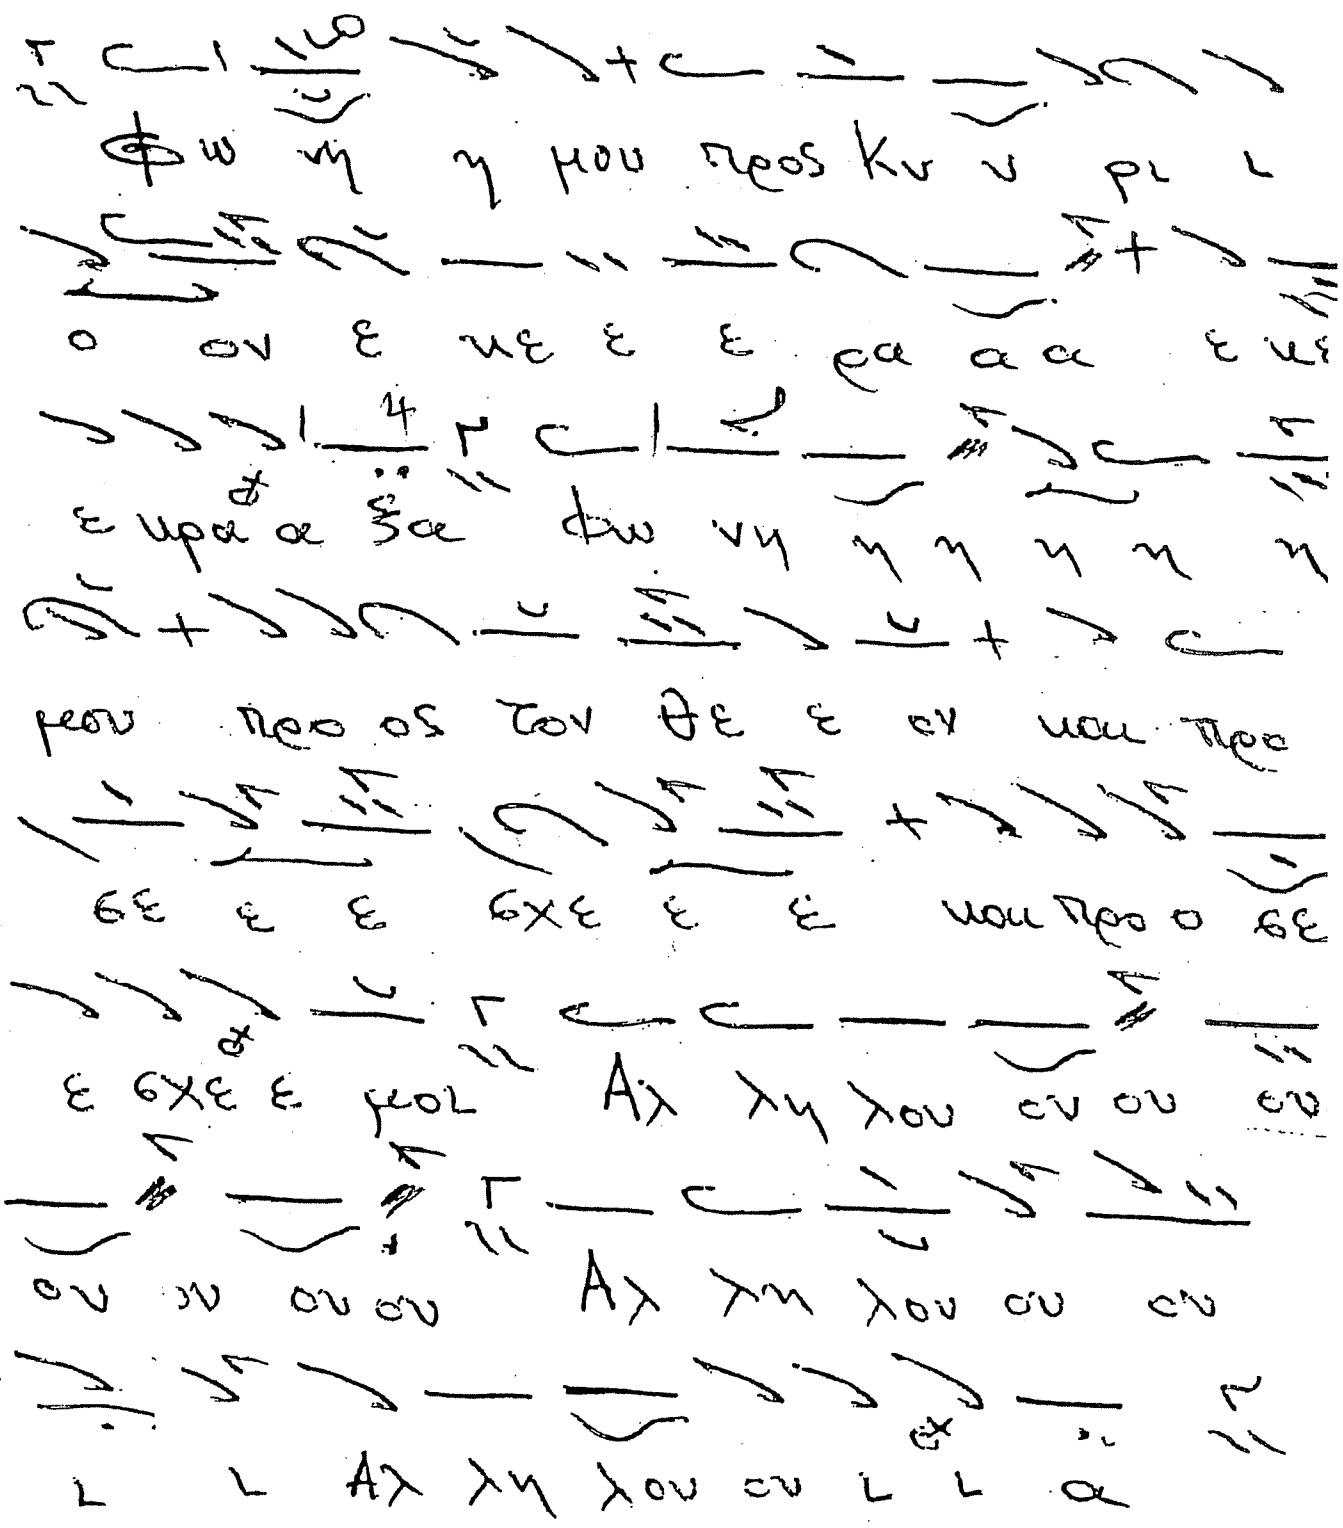 Φω νη η μου προς Κυ υ ρι ι
ο ον ε κε ε ε ρα α α ε κε
ε κρα α ξα φω νη η η η η η
μου προ ος τον θε ε ον και προ
σε ε ε σχε ε ε και προ ο σε
ε σχε ε μοι Αλ λη λου ου ου ου
ου ου ου ου Αλ λη λου ου ου
ι ι Αλ λη λου ου ι ι α